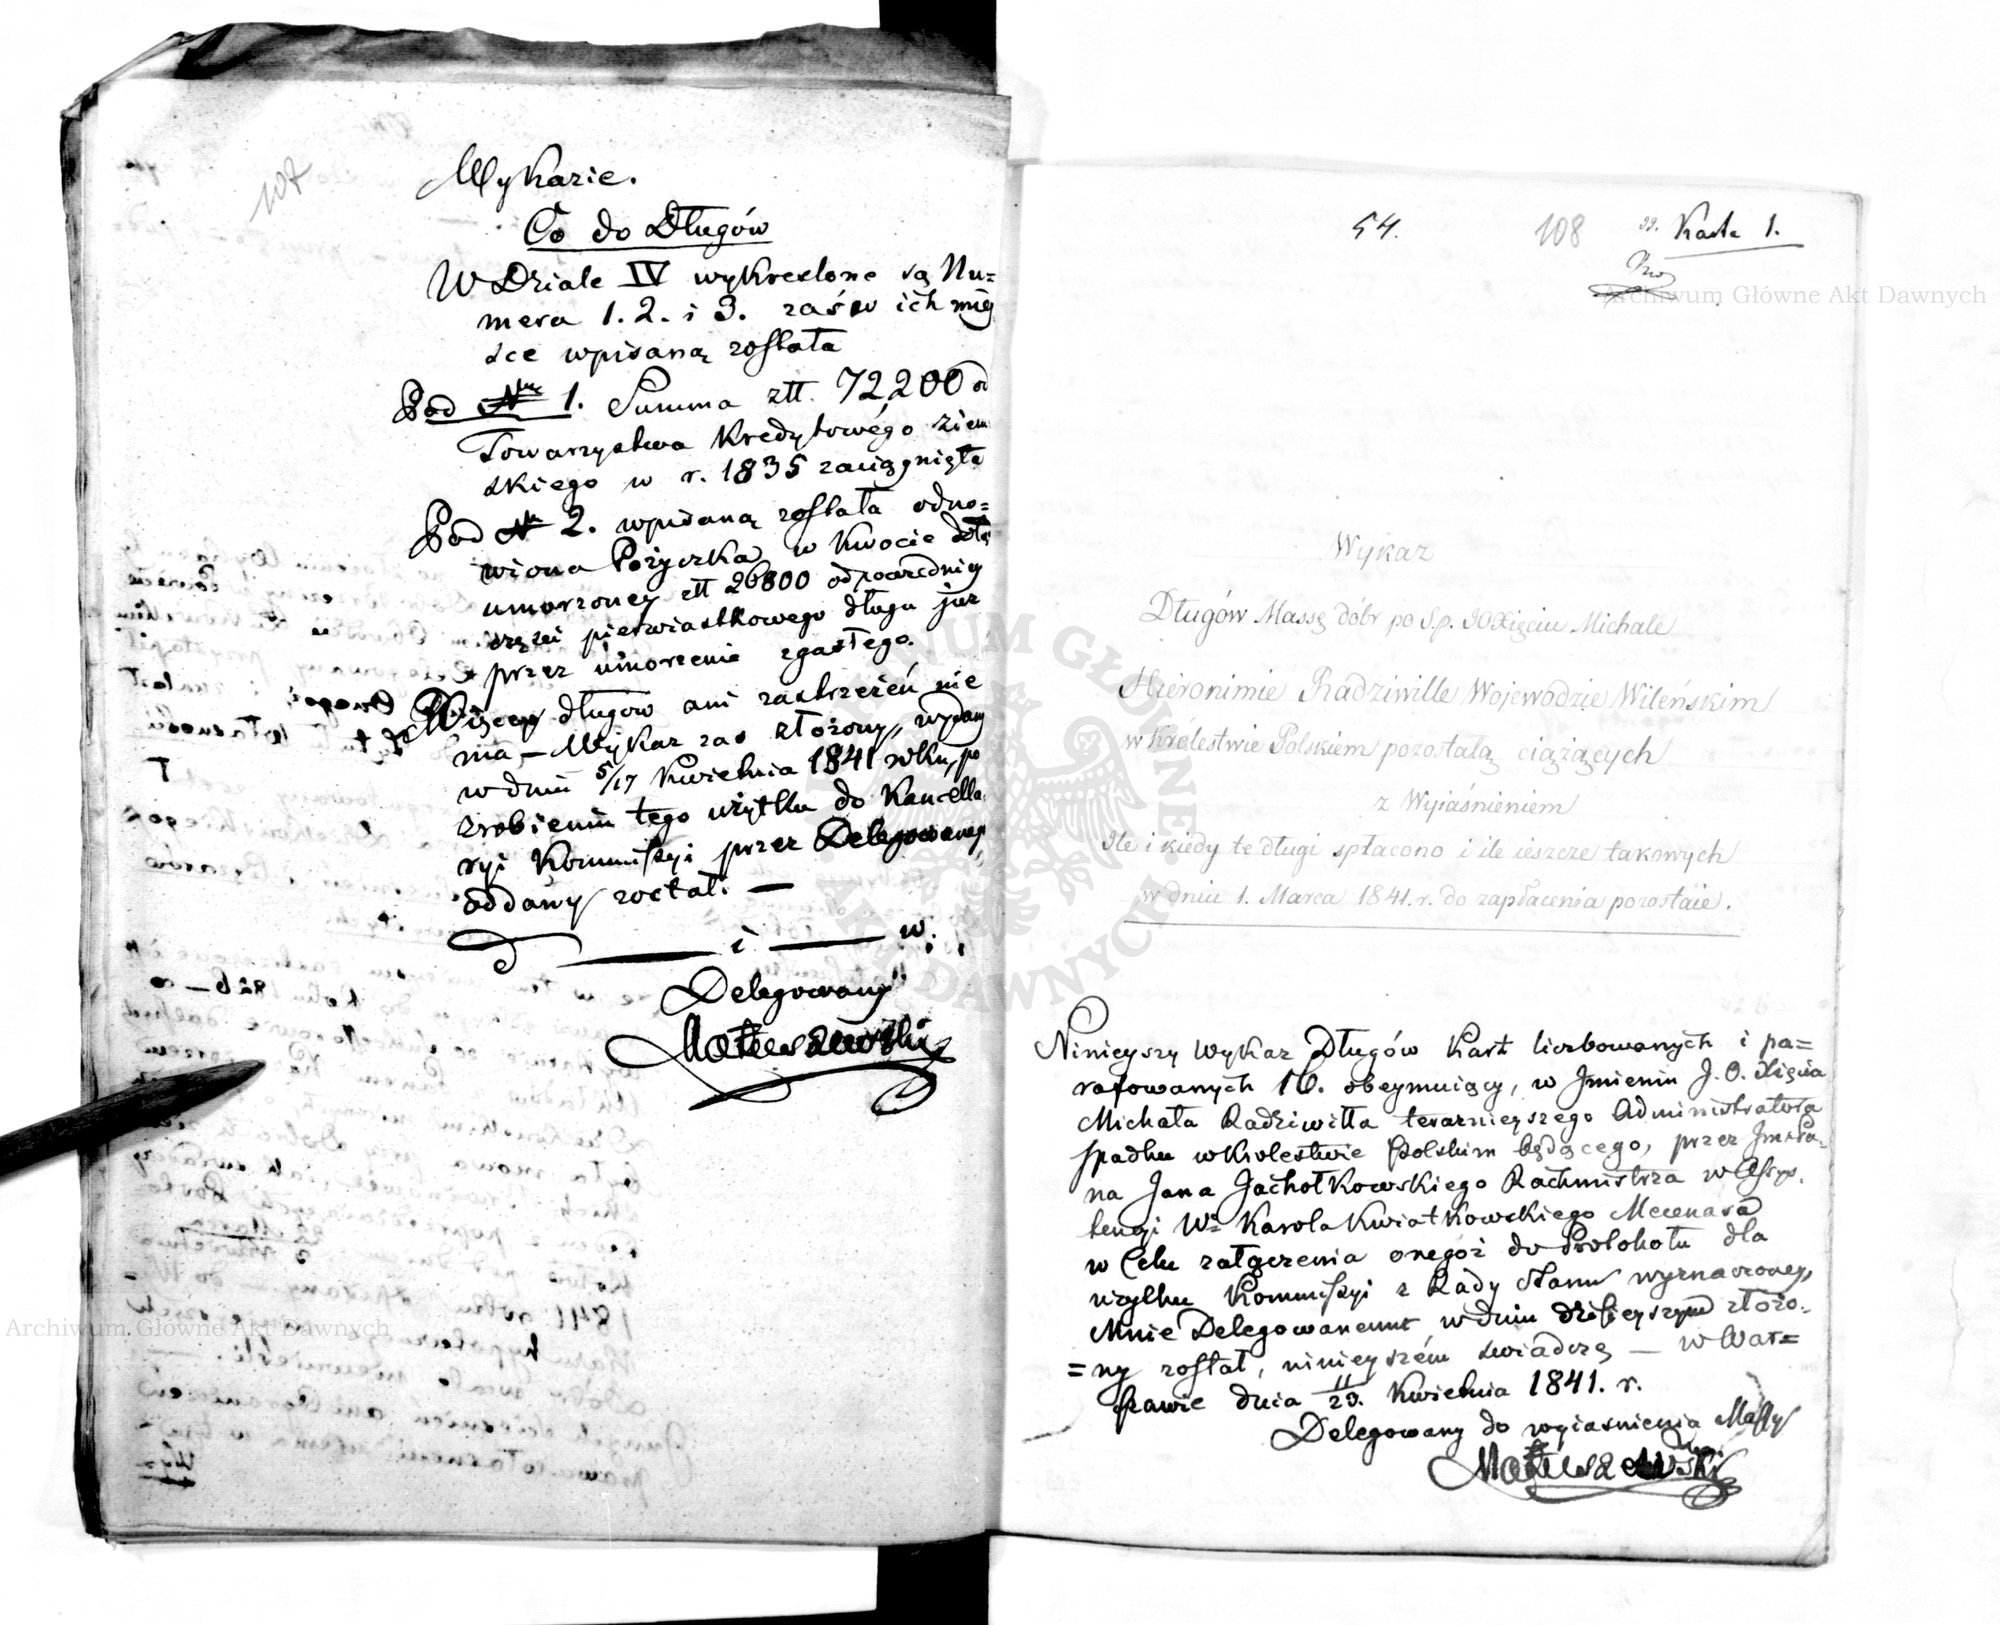 107
Wykazie.
Co do Długów
W Dziale IV wykreślone są Nu=
mera 1. 2. i 3. zaś w ich miey
sce wpisaną zostało
Pod Nr 1. Summa złł. 72,200 od
Towarzystwa Kredytowégo ziem
skiego w r. 1835 zaciągnięta
Pod Nr 2. wpisaną została odno=
wiona Pożyczka w kwocie
umorzoney złł 26800 odpowiedniey
części pierwiastkowego długu już
przez umorzenie zgasłego.
Więcey długów ani zastrzeżeń nie
ma, — Wykaz zaś złożony, wydany
w dniu 5/17 Kwietnia 1841 roku, po
zrobieniu tego użytku do Kancella
ryi Kommissyi przez Delegowanego
oddany został. —
i w.
Delegowany
Matuszewski
54. 108 Karta 1.
Wykaz
Długów Massę dóbr po S.p. JOXięciu Michale
Hieronimie Radziwille Wojewodzie Wileńskim
w Królestwie Polskiem pozostałą ciążących
z Wyjaśnieniem
Ile i kiedy te długi spłacono i ile ieszcze takowych
w dniu 1. Marca 1841. r. do zapłacenia pozostaie.
Ninieyszy Wykaz Długów Kart liczbowanych i pa=
rafowanych 16. obeymuiący, w Jmieniu J. O. Xięcia
Michała Radziwiłła teraznieyszego Administratora
spadku w Krolestwie Polskim będącego, przez Jmć Pa-
na Jana Jachołkowskiego Rachmistrza w Assys.
tencyi Wo Karola Kwiatkowskiego Mecenasa
w Celu załączenia onegoż do Protokołu dla
użytku Kommissyi z Rady Stanu wyznaczoney,
Mnie Delegowanemu w dniu dzisieyszym złożo-
=ny został, ninieyszém świadczę — w War=
szawie dnia 11/23. Kwietnia 1841. r.
Delegowany do wyiasnienia Massy
Matuszewski
Archiwum Główne Akt Dawnych
Archiwum Główne Akt Dawnych
ARCHIWUM GŁÓWNE AKT DAWNYCH